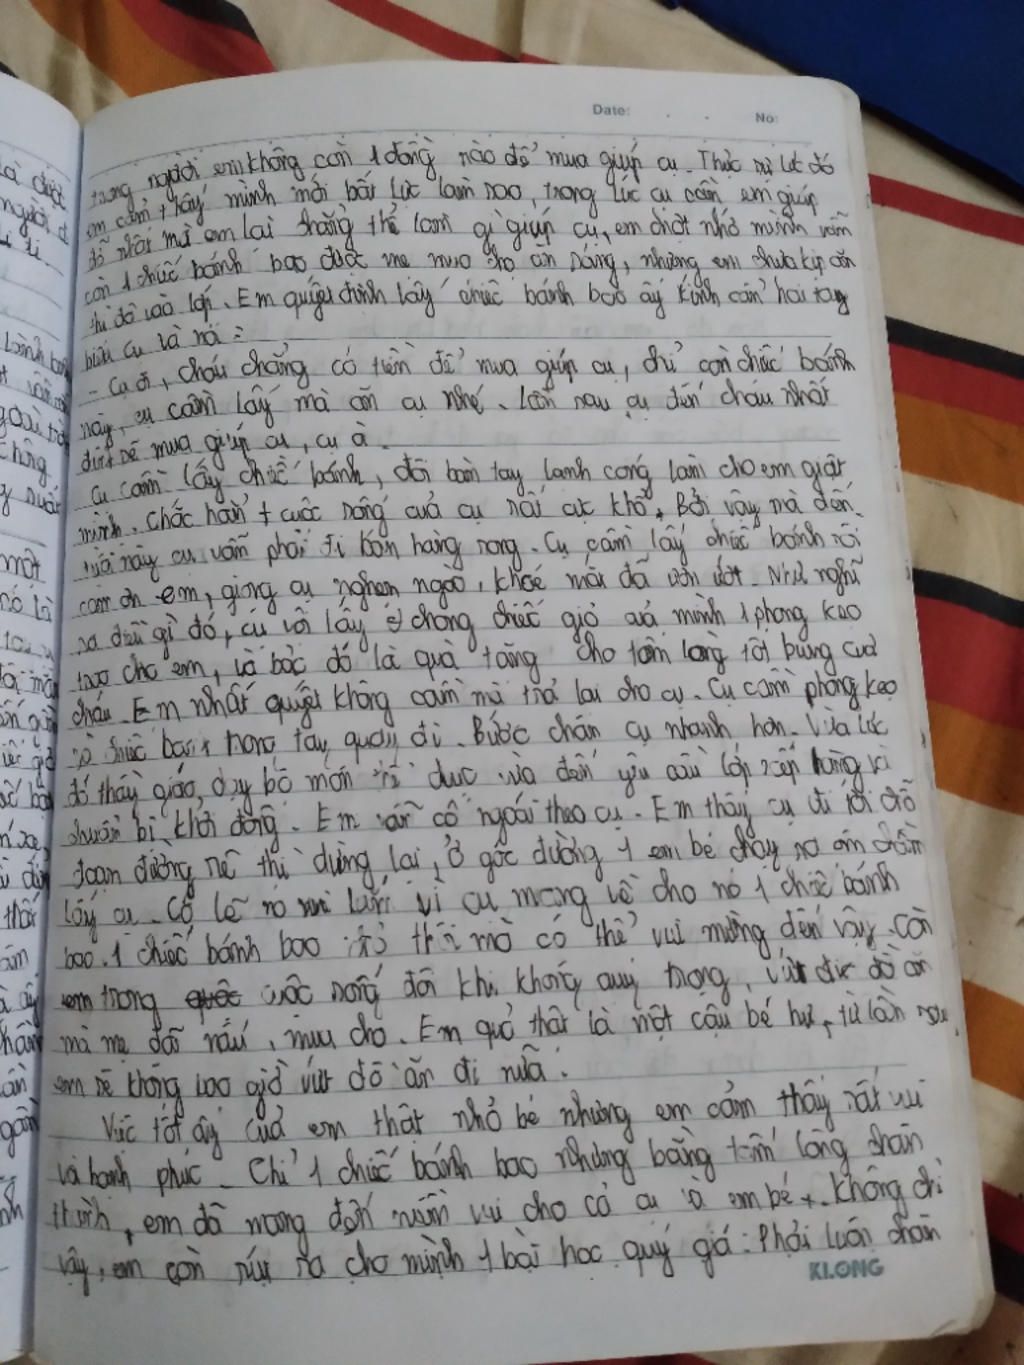 Date: No:
trong người em không còn 1 đồng nào để mua giúp cụ. Thực sự lúc đó
em cảm thấy mình mới bất lực làm sao, trong lúc cụ cần em giúp
đỡ nhất mà em lại chẳng thể làm gì giúp cụ, em chợt nhớ mình vẫn
còn 1 chiếc bánh bao được mẹ mua cho ăn sáng, nhưng em chưa kịp ăn
thì đã vào lớp. Em quyết định lấy chiếc bánh bao ấy kính cẩn hai tay
biếu cụ và nói :
- Cụ ơi, cháu chẳng có tiền để mua giúp cụ, chỉ còn chiếc bánh
này, cụ cầm lấy mà ăn cụ nhé. Lần sau cụ đến cháu nhất
định sẽ mua giúp cụ, cụ à.
Cụ cầm lấy chiếc bánh, đôi bàn tay lạnh cóng làm cho em giật
mình. Chắc hẳn cuộc sống của cụ rất cực khổ. Bởi vậy mà đến
tuổi này cụ vẫn phải đi bán hàng rong. Cụ cầm lấy chiếc bánh rồi
cảm ơn em, giọng cụ nghẹn ngào, khoé mắt đã ươn ướt. Như nghĩ
ra điều gì đó, cụ vội lấy ở trong chiếc giỏ của mình 1 phong kẹo
trao cho em, và bảo đó là quà tặng cho tấm lòng tốt bụng của
cháu. Em nhất quyết không cầm mà trả lại cho cụ. Cụ cầm phong kẹo
và chiếc bánh trong tay quay đi. Bước chân cụ nhanh hơn. Vừa lúc
đó thầy giáo dạy bộ môn thể dục vừa đến yêu cầu lớp xếp hàng và
chuẩn bị khởi động. Em vẫn cố ngoái theo cụ. Em thấy cụ đi tới chỗ
đoạn đường rẽ thì dừng lại, ở góc đường 1 em bé chạy ra ôm chầm
lấy cụ. Có lẽ nó vui lắm vì cụ mang về cho nó 1 chiếc bánh
bao. 1 chiếc bánh bao thôi mà có thể vui mừng đến vậy. Còn
em trong cuộc sống đôi khi không quý trọng, vứt đi đồ ăn
mà mẹ đã nấu, mua cho. Em quả thật là một cậu bé hư, từ lần sau
em sẽ không bao giờ vứt đồ ăn đi nữa.
Việc tốt ấy của em thật nhỏ bé nhưng em cảm thấy rất vui
và hạnh phúc. Chỉ 1 chiếc bánh bao nhưng bằng tấm lòng chân
thành, em đã mang đến niềm vui cho cả cụ và em bé. Không chỉ
vậy, em còn rút ra cho mình 1 bài học quý giá: Phải luôn chân
KLONG